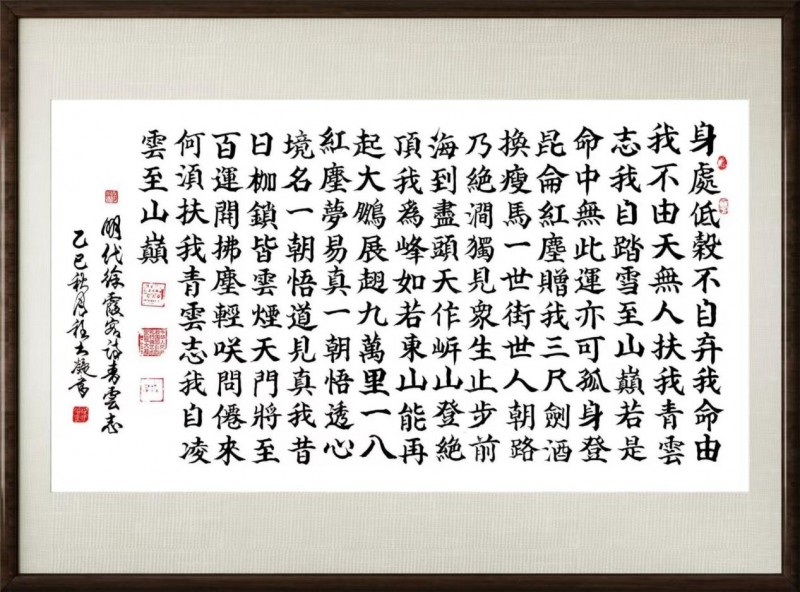 身處低穀不自弃我命由
我不由天無人扶我青雲
志我自踏雪至山巔若是
命中無此運亦可孤身登
昆侖紅塵贈我三尺劍酒
換瘦馬一世街世人朝路
乃絕澗獨見衆生止步前
海到盡頭天作岍山登絕
頂我爲峰如若東山能再
起大鵬展翅九萬里一八
紅塵夢易真一朝悟透心
境名一朝悟道見真我昔
日枷鎖皆雲煙天門將至
百運開拂塵輕咲問僊來
何湏扶我青雲志我自凌
雲至山巔
明代徐霞客詩青雲志
乙巳秋月程大凝書